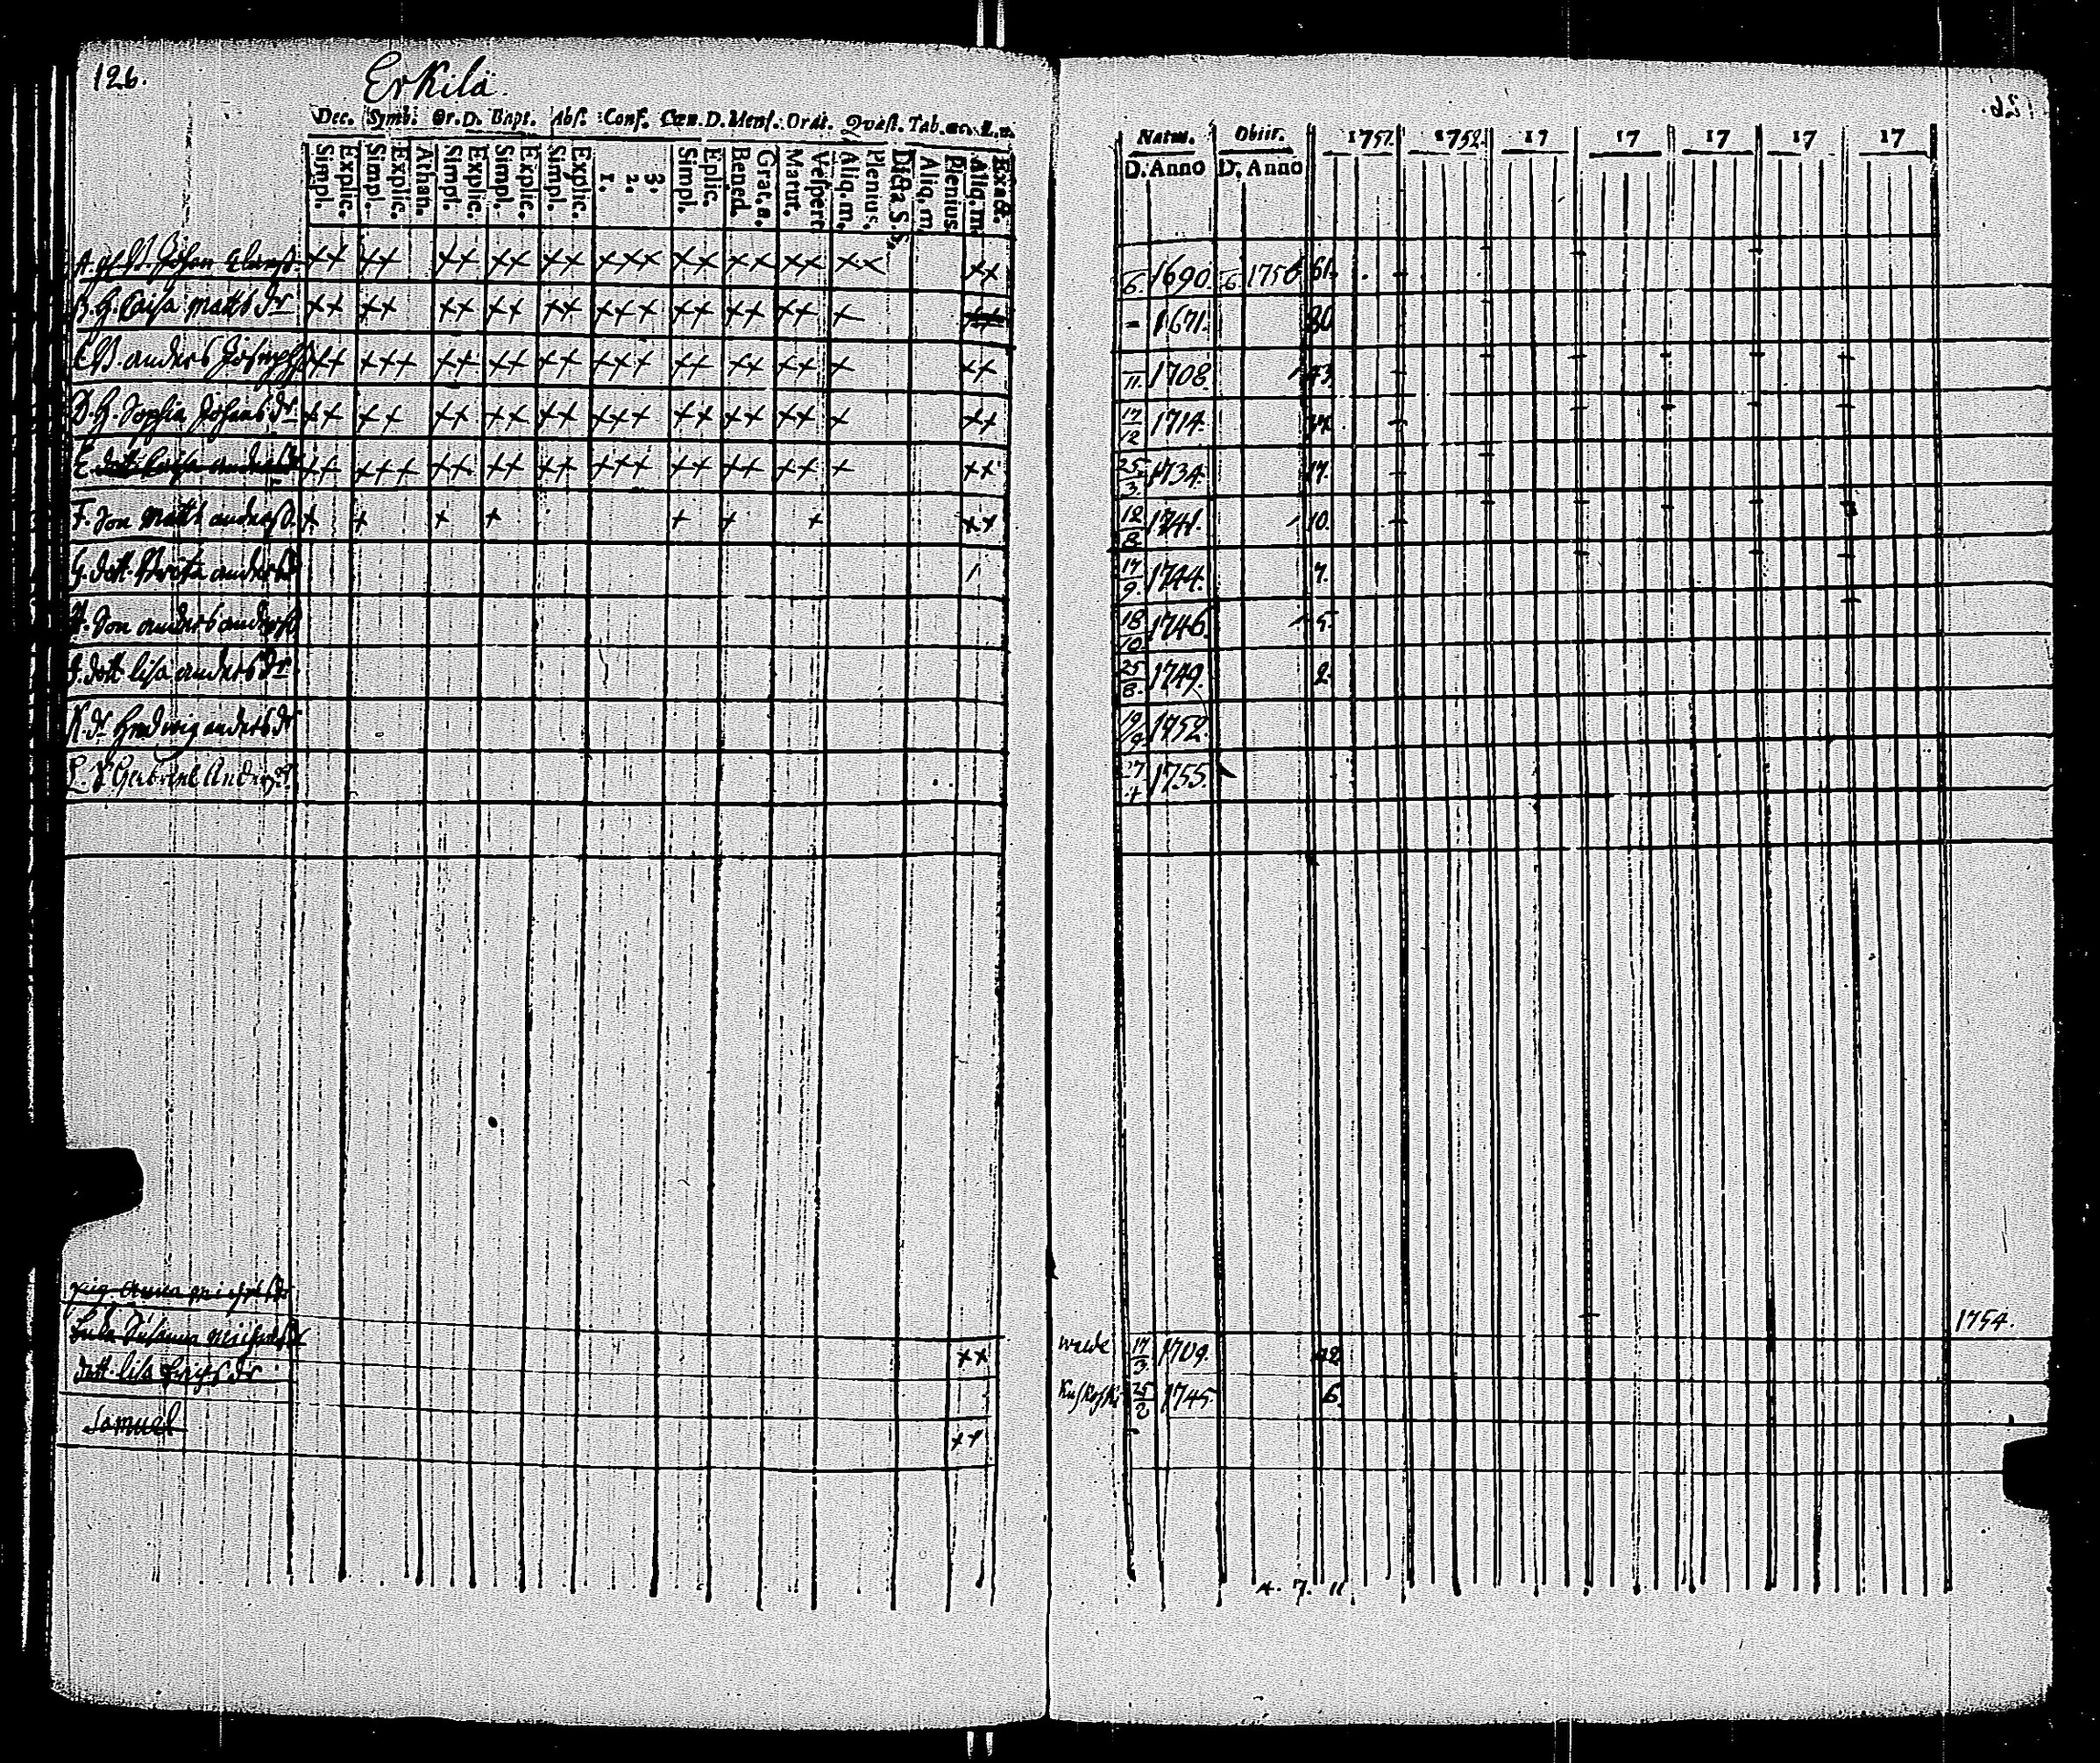 126.
Erkilä.
Dec. Symb: Or.D. Bapt. Abs. Conf. Cœn.D. Mens. Orat. Quæst. Tab.œc.
Simpl. Explic. Simpl. Explic. Athan. Simpl. Explic. Simpl. Explic. Simpl. Explic. 1. 2. 3. Simpl. Eplic. Bened. Grat. a. Matut. Vesper. Aliq. m. Plenius. Dicta S. S. Aliq. m. Plenius. Aliq. m. Exact.
Natus. Obiit. 1751. 1752. 17 17 17 17 17
D. Anno D. Anno
A. Johan ×× ×× ×× ×× ×× ××× ×× ×× ×× ×× ×× 6. 1690. 6. 1756 61.
B. H. Caisa Matts dr ×× ×× ×× ×× ×× ××× ×× ×× ×× × - 1671. 80
C. anders ×× ××× ×× ×× ×× ××× ×× ×× ×× × ×× 11. 1708. 43
D. H. Sophia Johans dr ×× ×× ×× ×× ×× ××× ×× ×× ×× × ×× 17/12 1714.
E. dott. Caisa anders dr ×× ××× ×× ×× ×× ××× ×× ×× ×× × ×× 25/3. 1734. 17.
F. Son Matts anderss. × × × × × × × ×× 12/8 1741. 10.
G. dott. anders dr 17/9. 1744. 7.
H. Son anders anderss 18/10 1746. 5.
J. dott lisa anders dr 25/8. 1749. 2.
K. dr Hedwig anders dr 19/9 1752.
L. Gabriel Anders 27/4 1755.
pig Anna
1754.
Susanna ×× 17/3 1709. 42
dott. lisa Erichs dr 25/2 1745. 6.
Samuel ××
4. 7. 11